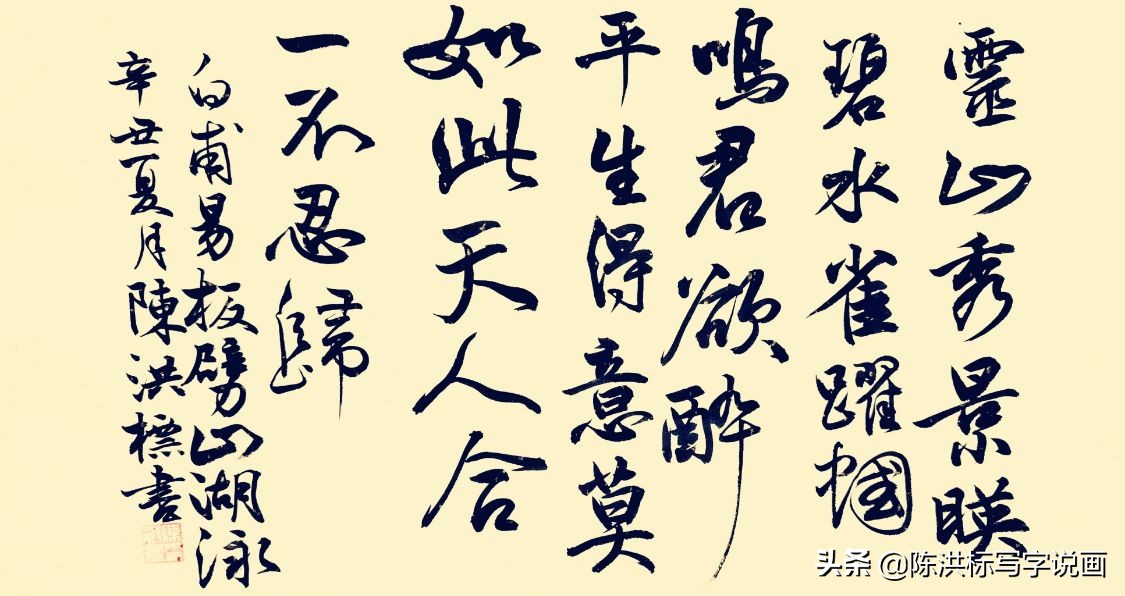 靈山秀景暎
碧水雀躍蟈
鳴君欲醉
平生得意莫
如此天人合
一不忍歸
白甫易板劈山湖泳
辛丑夏月陳洪標書
头条 @陈洪标写字说画